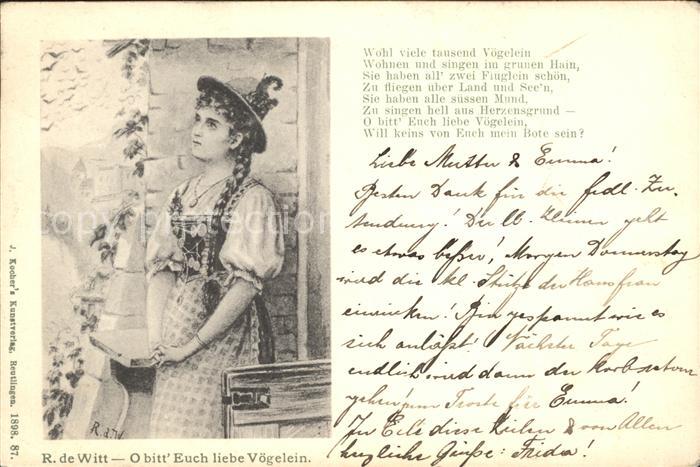 Wohl viele tausend Vögelein
Wohnen und singen im grunen Hain,
Sie haben all' zwei Fluglein schön,
Zu fliegen über Land und See'n,
Sie haben alle süssen Mund,
Zu singen hell aus Herzensgrund —
O bitt' Euch liebe Vögelein,
Will keins von Euch mein Bote sein?
Liebe Mutter & Emma!
Besten Dank für die frdl. Zu-
sendung! Der lb. Kleinen geht
es etwas beßer! Morgen Donnerstag
wird die kl. Stütze der Hausfrau
einrücken! Bin gespannt wie es
sich anläßt. Nächste Tage
endlich wird dann der
Trost für Emma!
In Eile diese Zeilen & von Allen
herzliche Grüße: Frieda!
R. d. W
R. de Witt — O bitt' Euch liebe Vögelein.
J. Kocher's Kunstverlag, Reutlingen. 1898. 87.